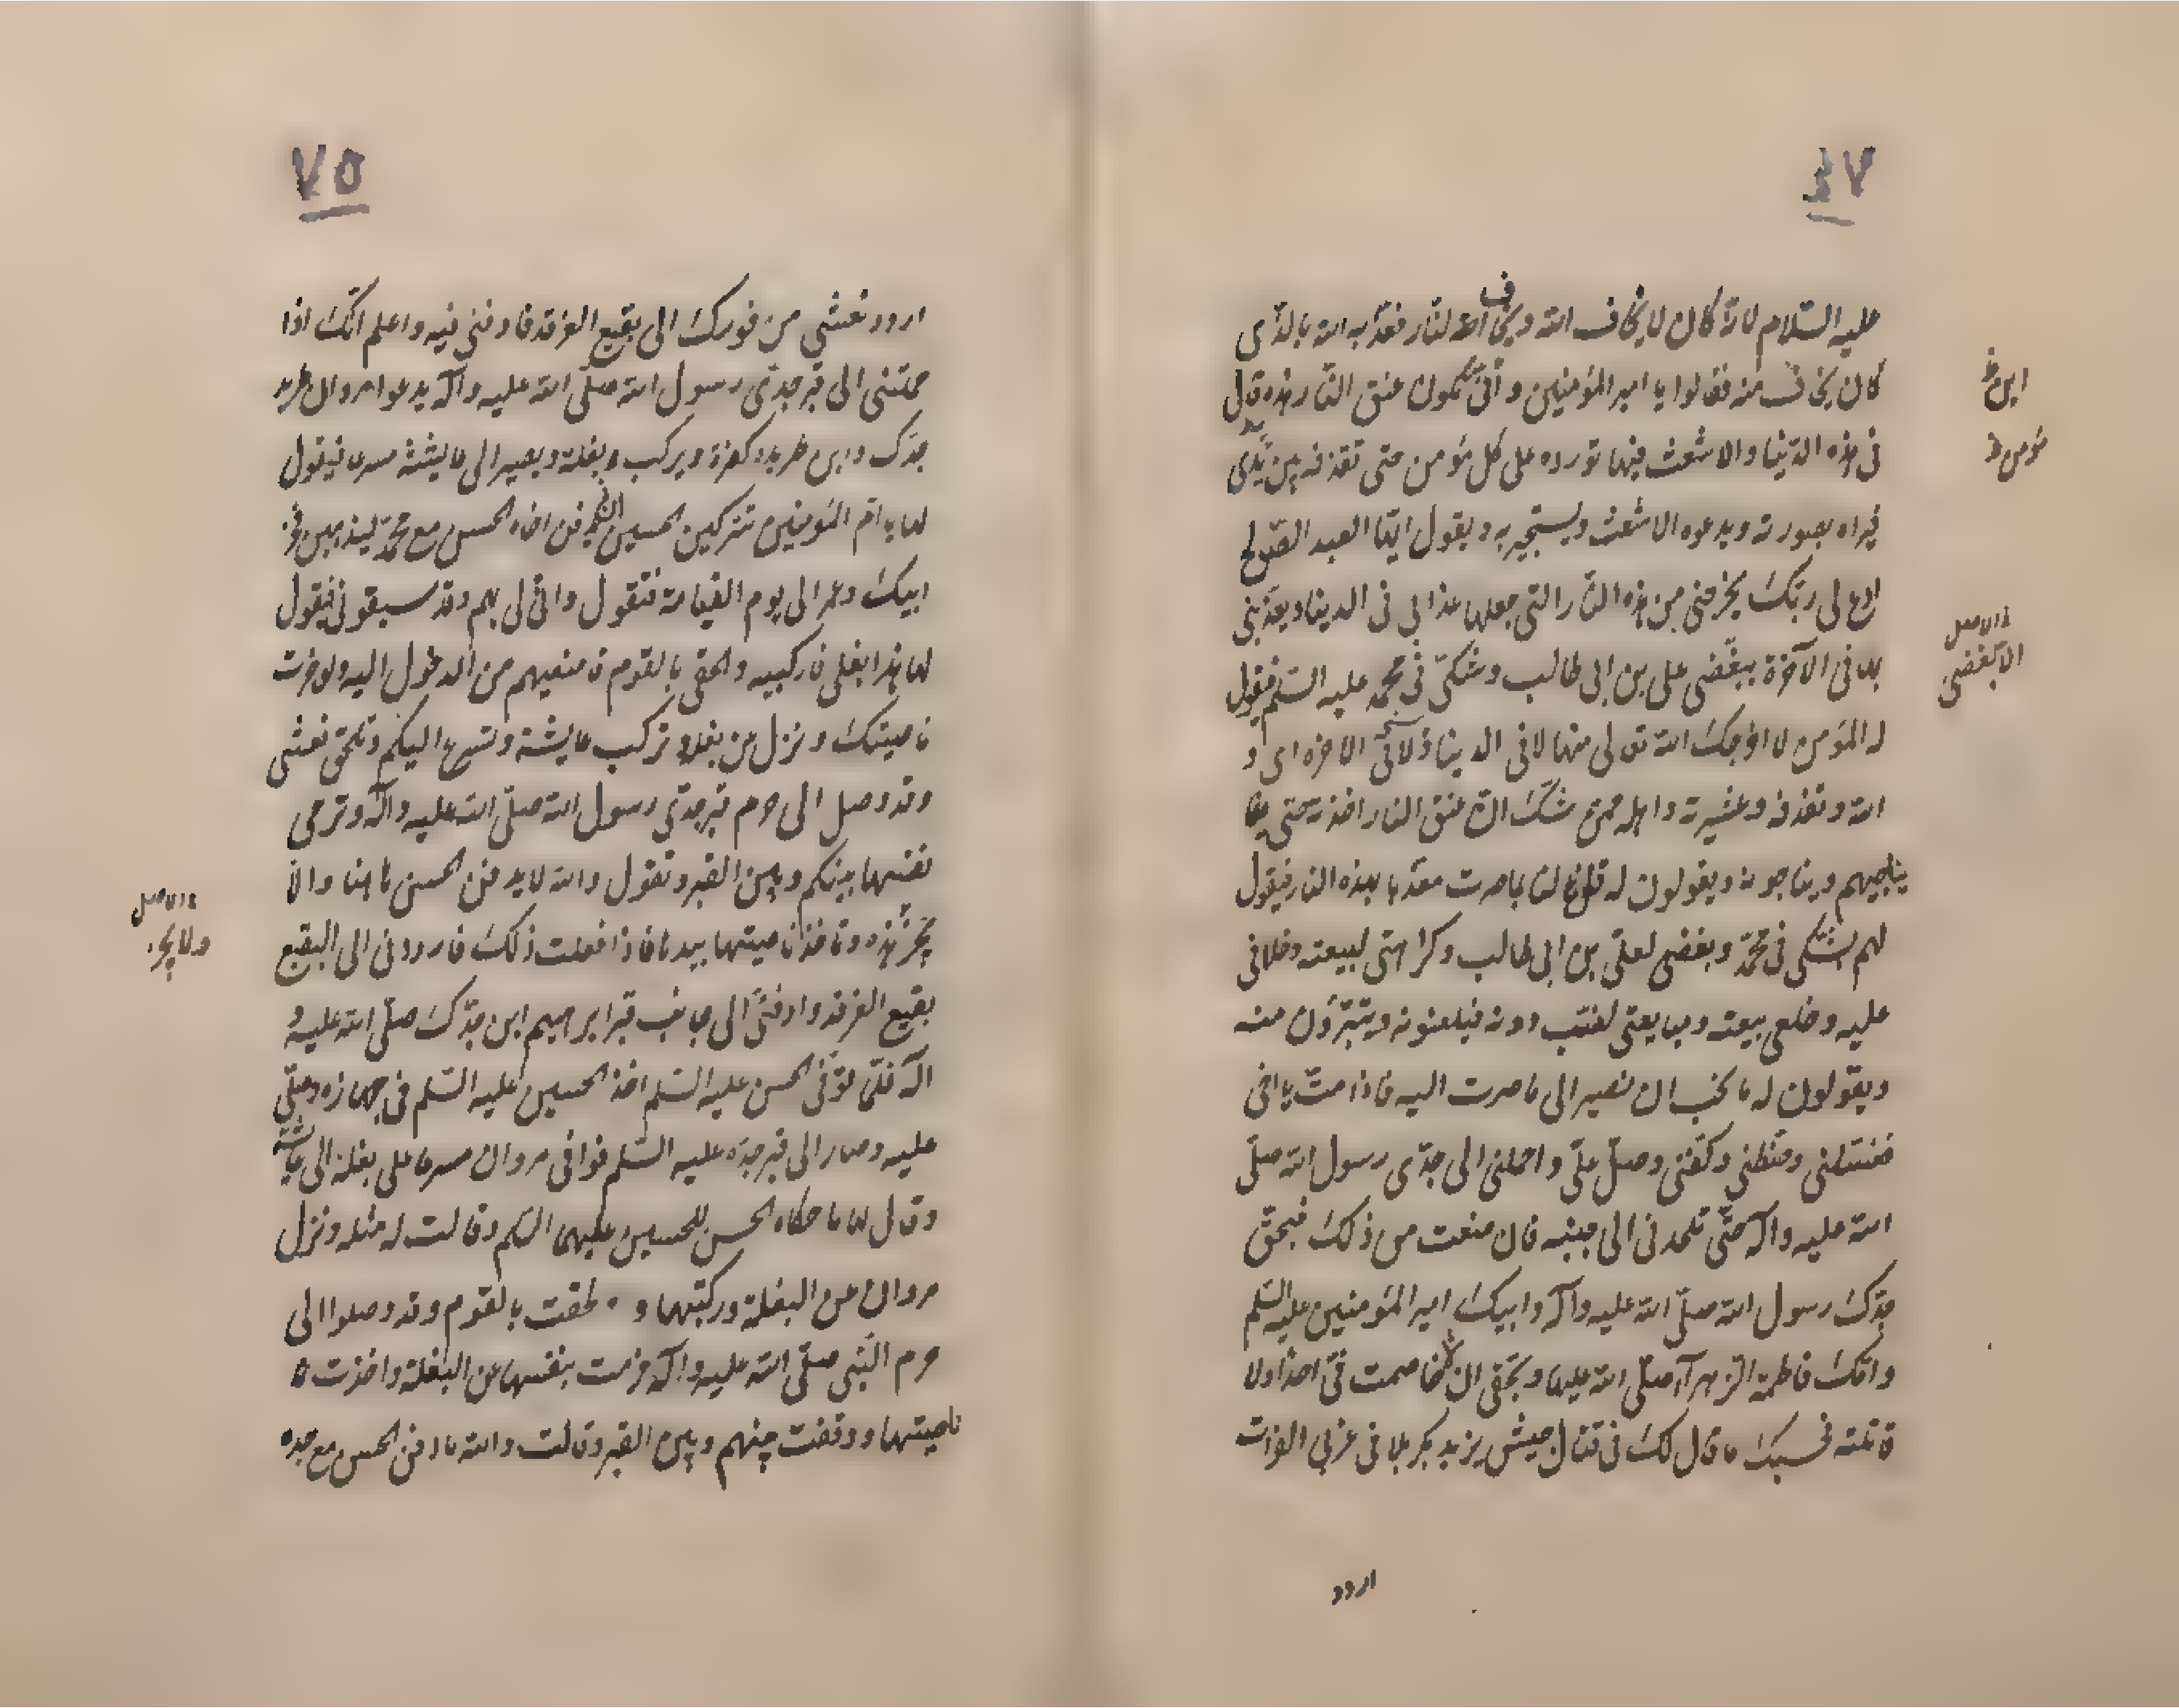 ٧٤
عليه السّلام لانّه كان لا يخاف الله ويخاف النّار فعذّبه الله بالّذى
كان يخاف منه فقالوا يا امير المؤمنين وانّى يكون عنق النّار هذه قال
فى هذه الدّنيا والاشعث فيها تورده على كل مؤمن حتى تقذفه بين يديه
فيراه بصورته ويدعوه الاشعث ويستجير به ويقول ايّها العبد الصّالح
ادع لى ربّك يخرجنى من هذه النّار التى جعلها عذابى فى الدينا ويعذّبنى
بها فى الآخرة ببغضى على بن ابى طالب وشكّى فى محمّد عليه السّلم فيقول
له المؤمن لا اخرجك الله تعالى منها لا فى الدينا ولا فى الاخره اى و
الله وتقذفه وعشيرته واهله ممّن شكّ انّ عنق النار اخذته حتى
يناجيهم ويناجونه ويقولون له قل لنا بما صرت معذّبا بهذه النار فيقول
لهم بشكّى فى محمّد وبغضى لعلىّ بن ابى طالب وكراهتى لبيعته وخلافى
عليه وخلعى بيعته ومبايعتى لضب دونه فيلعنونه ويتبرّؤن منه
ويقولون له ما نحب ان نصير الى ما صرت اليه فاذا متّ يا اخى
فغسّلنى وحنّطنى وكفّنى وصلّ علىّ واحملنى الى جدّى رسول الله صلّى
الله عليه وآله حتّى تلحدنى الى جنبه فان منعت من ذلك فبحقّ
جدّك رسول الله صلّى الله عليه وآله وابيك امير المؤمنين عليه السّلم
وامّك فاطمة الزهرآء صلّى الله عليها وبحقّى ان خاصمت فىّ احدا ولا
قاتلته فحسبك ما قال لك فى قتال جيش يزيد بكربلا فى غربى الفرات
اردد
مؤمن
الاصل
٧٥
اردد نعشى من فورك الى بقيع الغرقد فادفنى فيه واعلم انّك اذا
حملتنى الى قبر جدّى رسول الله صلّى الله عليه وآله يدعوا مروان طريد
جدّك وابن طريده كفرة ويركب وبغلة ويصير الى عايشة مسرعا فيقول
لها يا امّ المؤمنين تتركين الحسين يدفن اخاه الحسن مع محمّد ليذهبن فخر
ابيك وعمر الى يوم القيامة فتقول وانّى لى بهم وقد سبقونى فيقول
لها هذا بغلى فاركبيه والحقى بالقوم فامنعيهم من الدخول اليه ولو جزت
ناصيتك وينزل عن بغله وتركب عايشة وتسرع اليكم وتلحق نعشى
وقد وصل الى حرم قبر جدّى رسول الله صلّى الله عليه وآله وترمى
نفسها بينكم وبين القبر وتقول والله لا يدفن الحسن هاهنا والّا
تجزّ هذه وتأخذ ناصيتها بيدها فاذا فعلت ذلك فارددنى الى البقيع
بقيع الغرقد وادفنّى الى جانب قبر ابرهيم ابن جدّك صلّى الله عليه و
آله فلمّا توفّى الحسن عليه السّلم اخذ الحسين عليه السّلم فى جهازه وصلّى
عليه وصار الى قبر جدّه عليه السّلم فوافى مروان مسرعا على بغلة الى عايشة
وقال لها ما حكاه الحسن للحسين عليهما السّلم وقالت له مثله ونزل
مروان عن البغلة وركبتها و لحقت بالقوم وقد وصلوا الى
حرم النّبى صلّى الله عليه وآله فرمت بنفسها عن البغلة واخذت
ناصيتها ووقفت بينهم وبين القبر وقالت والله ما دفن الحسن مع جده
الاصل
ولا يجز